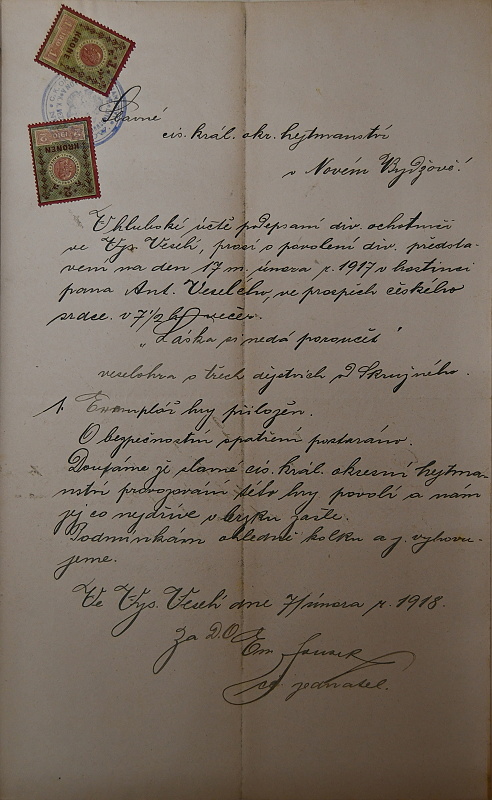 KRONE
KRONEN
Slavné
cís. král. okr. hejtmanství
v Novém Bydžově!
V hluboké úctě podepsaní div. ochotníci
ve Vys. Veselí, prosí o povolení div. předsta-
vení na den 17 m. února r. 1917 v hostinci
pana Ant. Veselého, ve prospěch českého
srdce. v 7 1/2 h večer.
„Láska si nedá poroučet"
veselohra o třech dějstvích od Skružného.
1. Exemplář hry přiložen.
O bezpečnostní opatření postaráno.
Doufáme že slavné cís. král. okresní hejtma-
nství provozování této hry povolí a nám
jej co nejdříve v brzku zašle.
Podmínkám ohledně kolku a j. vyhovu-
jeme.
Ve Vys. Veselí dne 7/února r. 1918.
Za D.O.
Em.
jednatel.